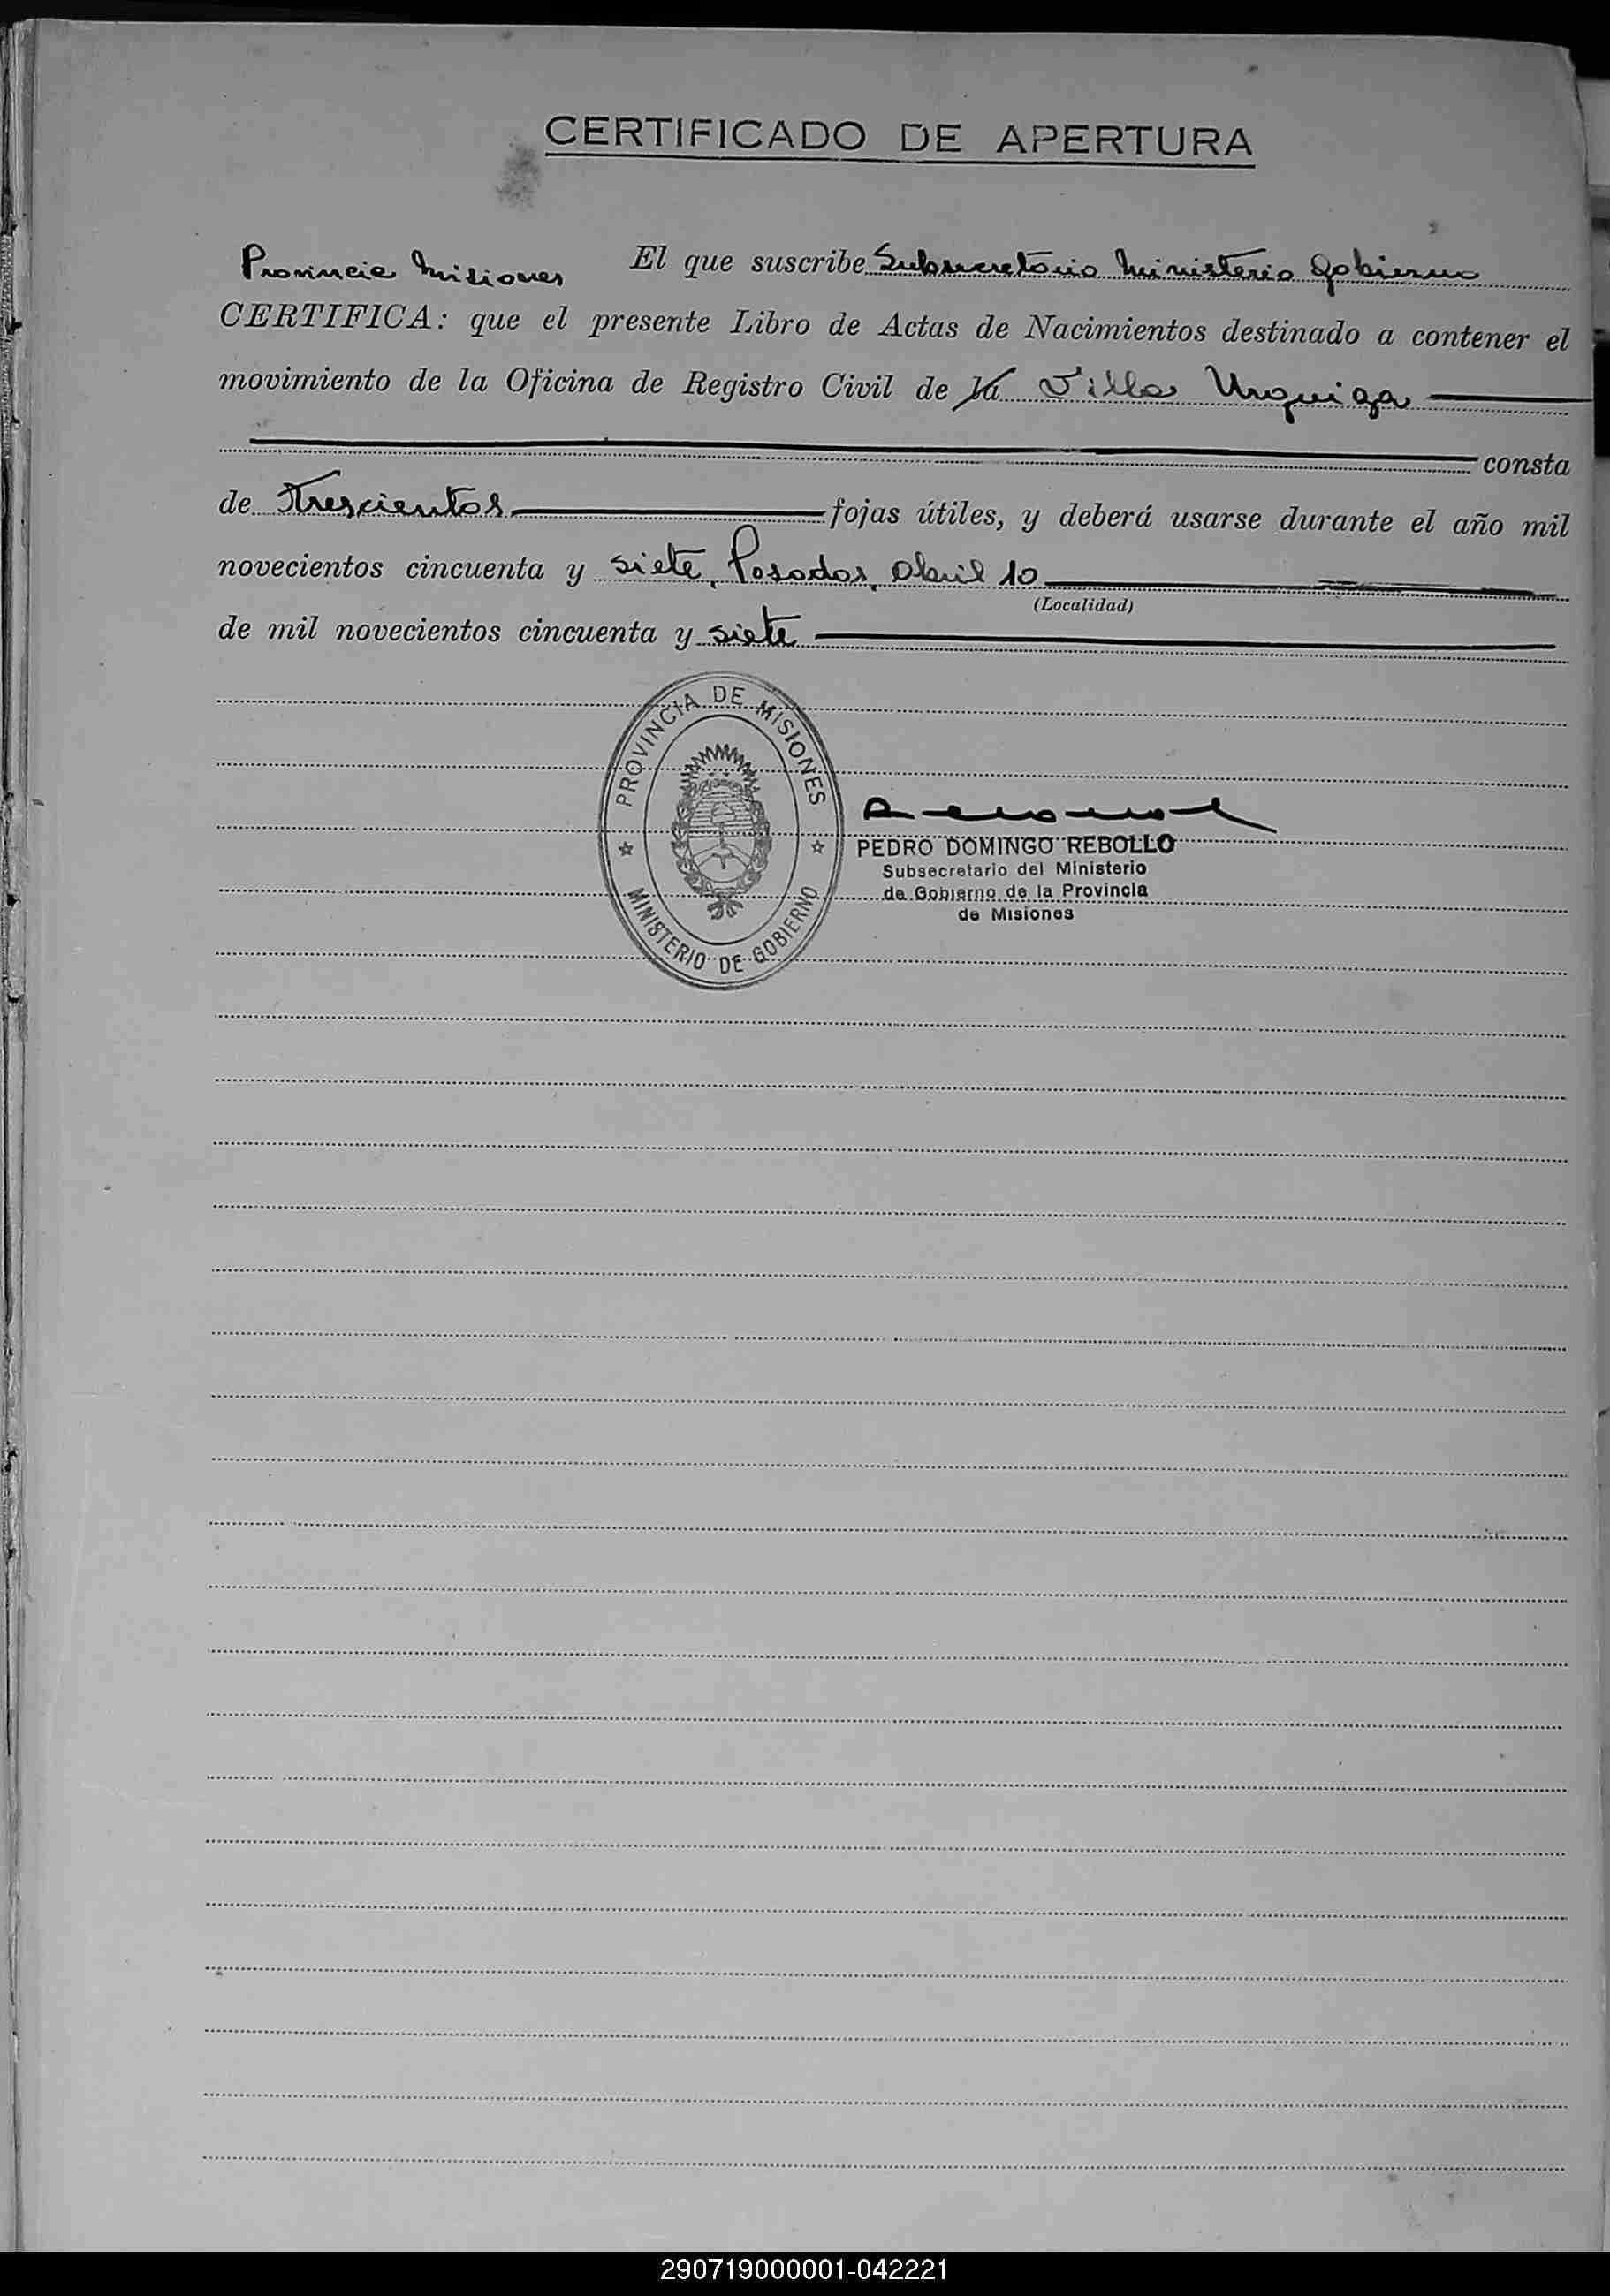 CERTIFICADO DE APERTURA
El que suscribe Subsecretario Ministerio Gobierno
Provincia Misiones
CERTIFICA: que el presente Libro de Actas de Nacimientos destinado a contener el
movimiento de la Oficina de Registro Civil de la Villa Urquiza
consta
de Trescientos fojas útiles, y deberá usarse durante el año mil
novecientos cincuenta y siete, Posadas, Abril 10
(Localidad)
de mil novecientos cincuenta y siete
PROVINCIA DE MISIONES
MINISTERIO DE GOBIERNO
PEDRO DOMINGO REBOLLO
Subsecretario del Ministerio
de Gobierno de la Provincia
de Misiones
290719000001-042221